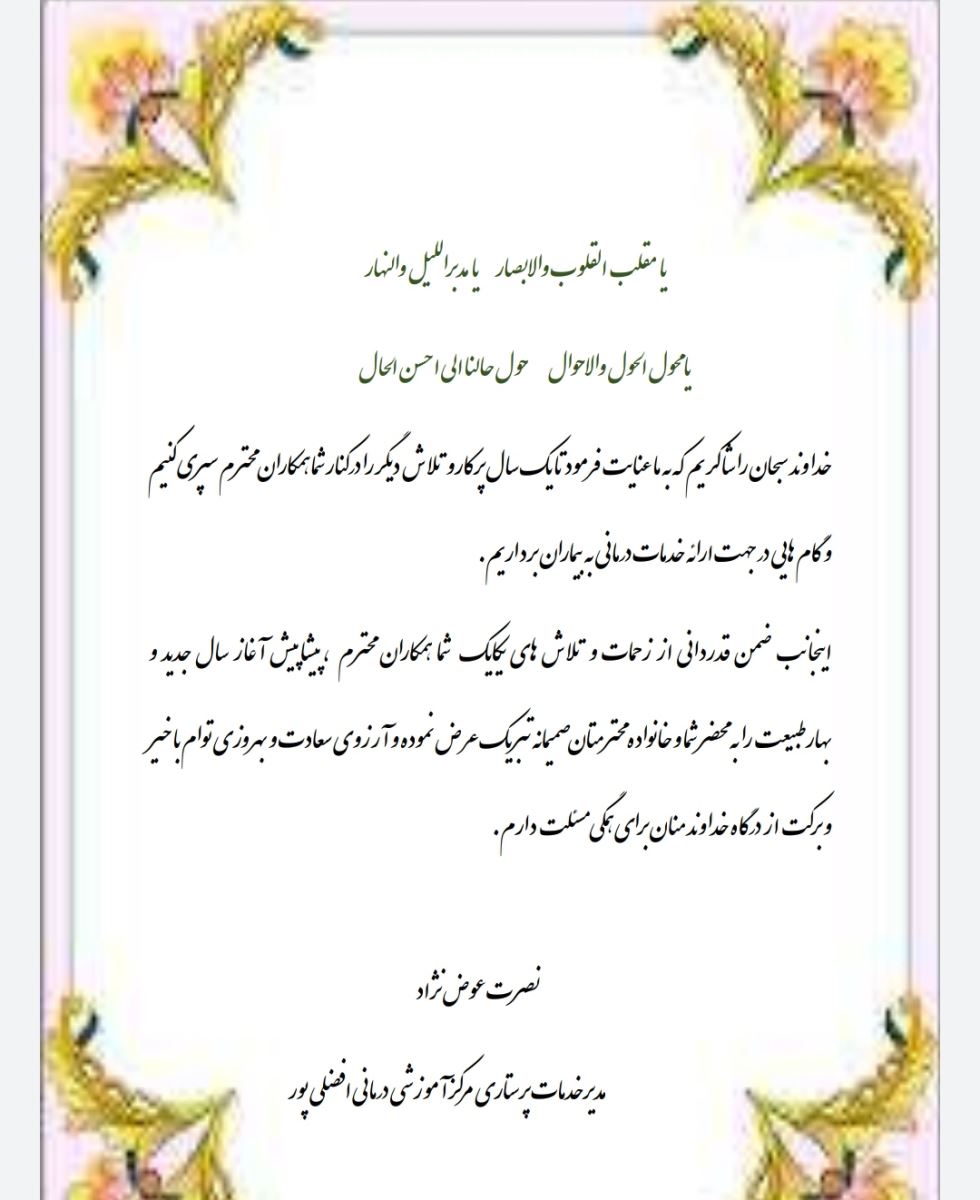 یا مقلب القلوب والابصار   یا مدبراللیل والنهار
یامحول الحول والاحوال   حول حالنا الی احسن الحال
خداوند سبحان را شاکریم که به ما عنایت فرمود تا یک سال پرکار و تلاش دیگر را در کنار شما همکاران محترم سپری کنیم
و گام هایی در جهت ارائه خدمات درمانی به بیماران برداریم .
اینجانب ضمن قدردانی از زحمات و تلاش های یکایک شما همکاران محترم ، پیشاپیش آغاز سال جدید و
بهار طبیعت را به محضر شما و خانواده محترمتان صمیمانه تبریک عرض نموده و آرزوی سعادت و بهروزی توام با خیر
و برکت از درگاه خداوند منان برای همگی مسئلت دارم .
نصرت عوض نژاد
مدیر خدمات پرستاری مرکز آموزشی درمانی افضلی پور